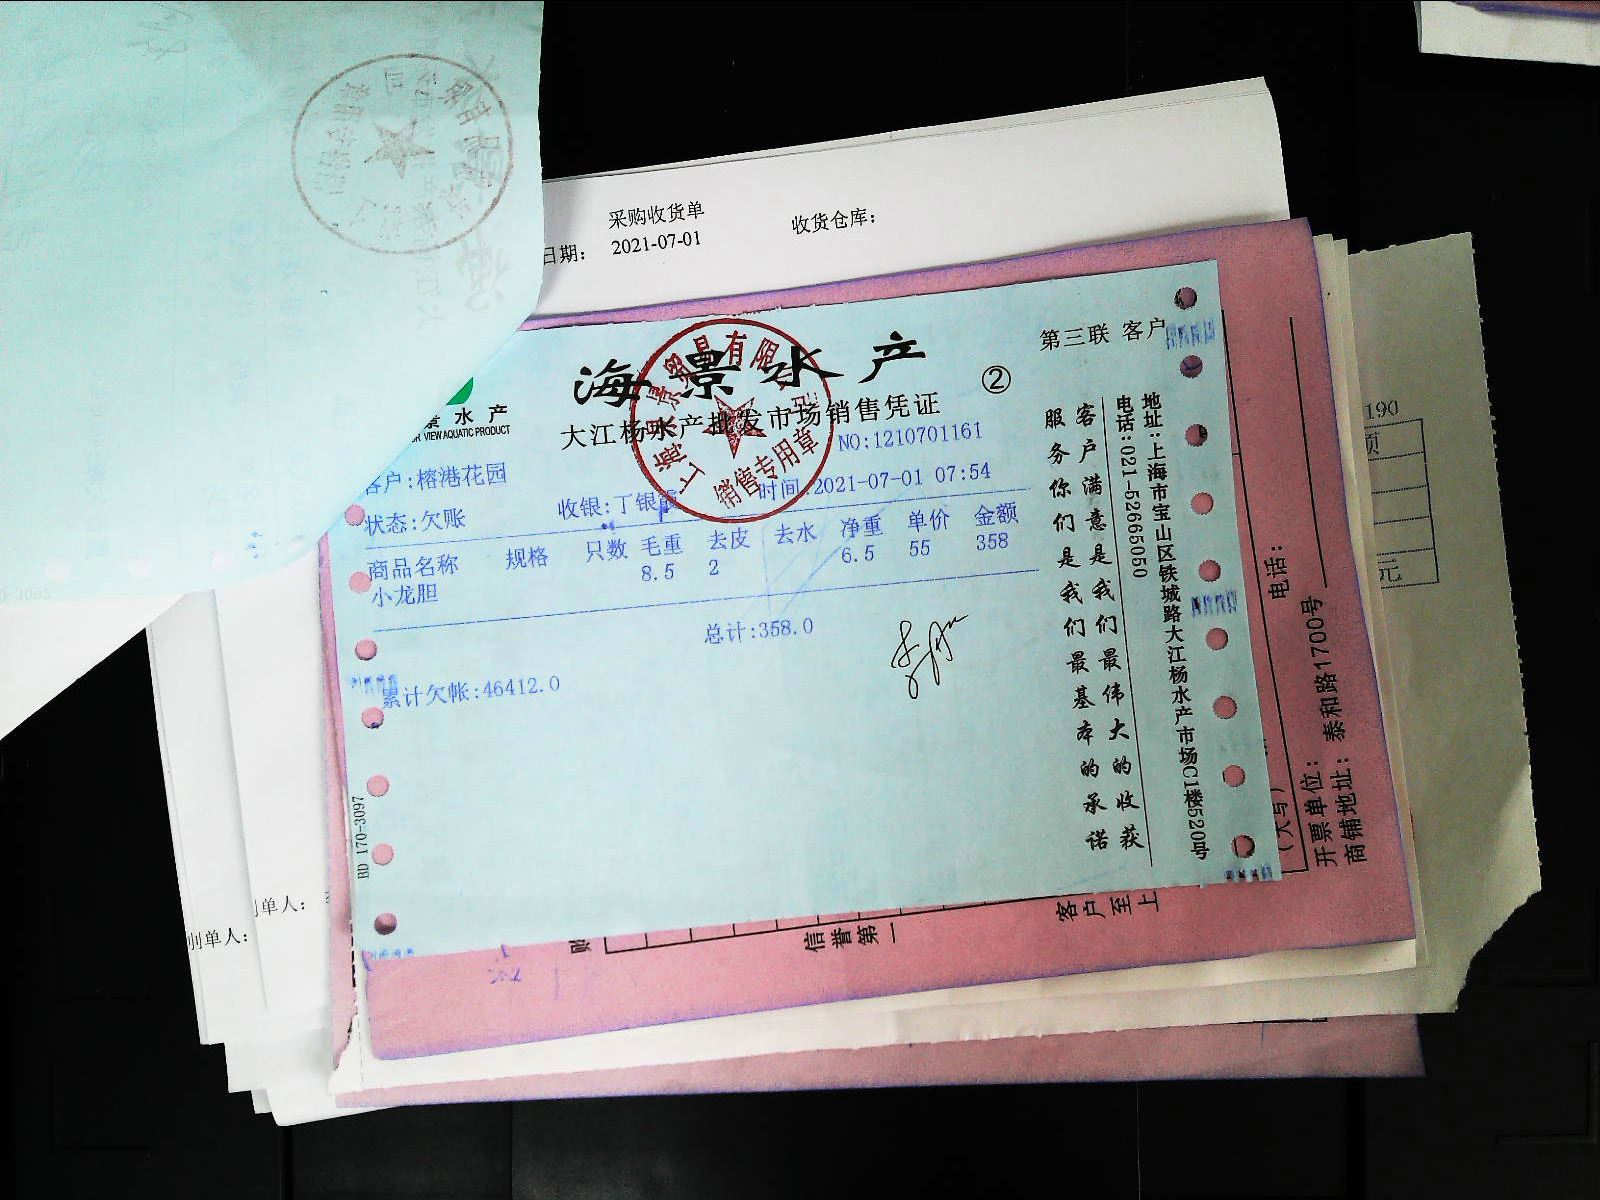 采购收货单
日期： 2021-07-01
收货仓库：
海景水产
②
第三联 客户
景水产
VIEW AQUATIC PRODUCT
大江杨水产批发市场销售凭证
NO:1210701161
客户:榕港花园
状态:欠账
收银:丁银霞
时间:2021-07-01 07:54
商品名称 规格 只数 毛重 去皮 去水 净重 单价 金额
小龙胆 8.5 2 6.5 55 358
总计:358.0
累计欠帐:46412.0
销售专用章
客户满意是我们最伟大的收获
服务你们是我们最基本的承诺
地址:上海市宝山区铁城路大江杨水产市场C1楼520号
电话:021-52665050
BD 170-3097
190
元
电话：
(大写)
开票单位：
商铺地址： 泰和路1700号
信誉第一
客户至上
制单人：
制单人：